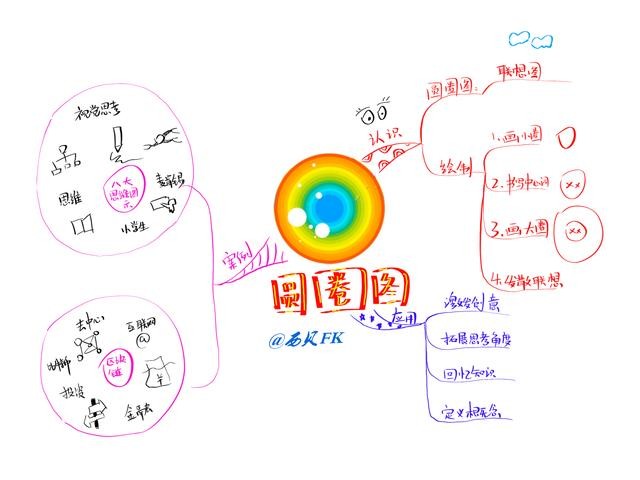 圆圈图
@西贝FK
认识
圆圈图:
联想图
绘制
1.画小圈
2.书写中心词
xx
3.画大圈
xx
4.发散联想
应用
激发创意
拓展思考角度
回忆知识
定义概念
案例
视觉思考
思维
八大
思维图示
小学生
去中心
互联网
@
区块
链
投资